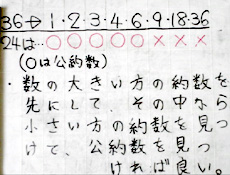 36→1・2・3・4・6・9・18・36
24は…○○○○○×××
(○は公約数)
・数の大きい方の約数を
先にして、その中なら
小さい方の約数を見つ
けて、公約数を見つ
ければ良い。